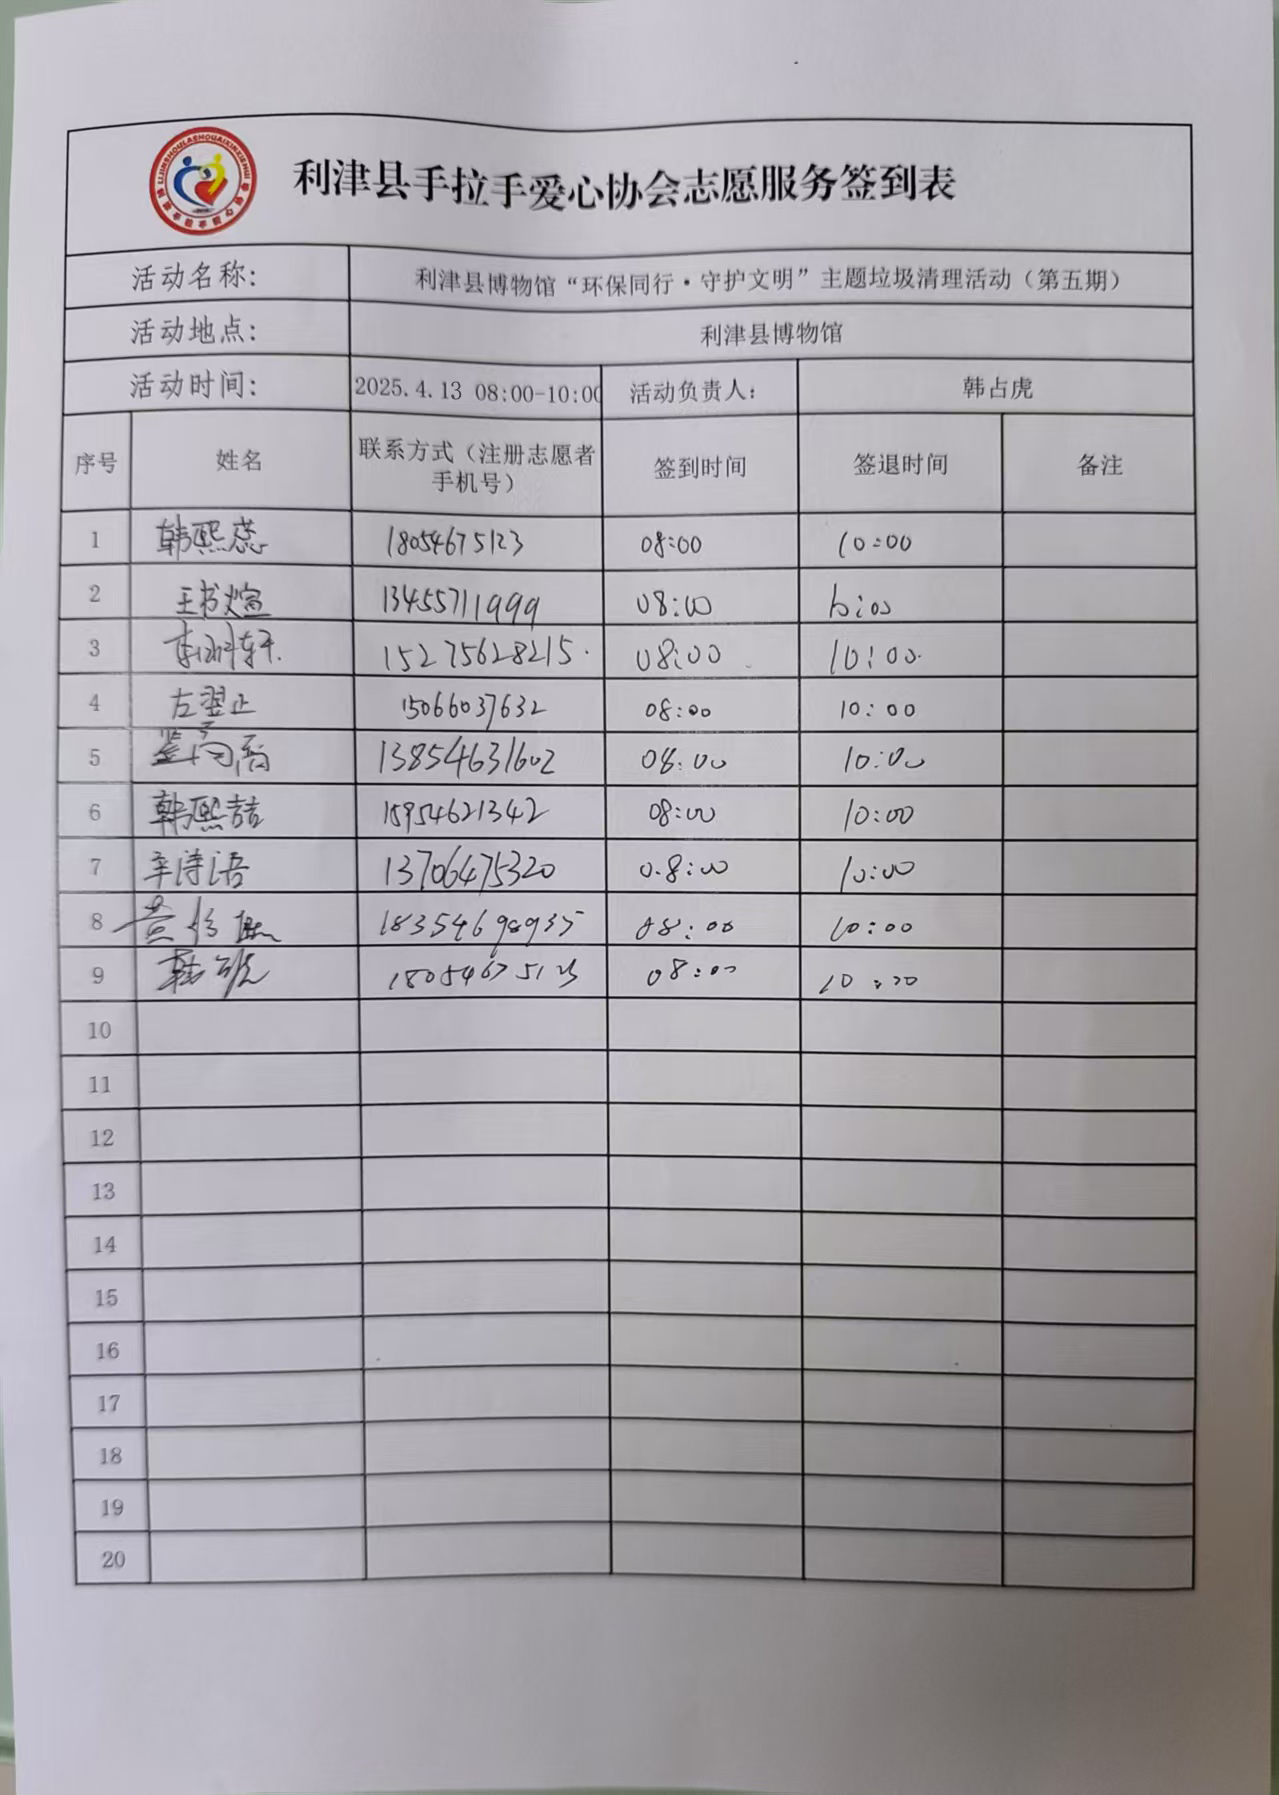 利津县手拉手爱心协会志愿服务签到表
活动名称: 利津县博物馆“环保同行·守护文明”主题垃圾清理活动（第五期）
活动地点: 利津县博物馆
活动时间: 2025.4.13 08:00-10:00 活动负责人: 韩占虎
序号 姓名 联系方式（注册志愿者手机号） 签到时间 签退时间 备注
1 韩熙蕊 18054675123 08:00 10:00
2 王书煊 13455711999 08:00 10:00
3 李 轩 15275628215 08:00 10:00
4 左翌正 15066037632 08:00 10:00
5 13854631602 08:00 10:00
6 韩熙喆 15954621342 08:00 10:00
7 辛诗语 13706475320 08:00 10:00
8 黄 18354698935 08:00 10:00
9 韩 18054675123 08:00 10:00
10
11
12
13
14
15
16
17
18
19
20